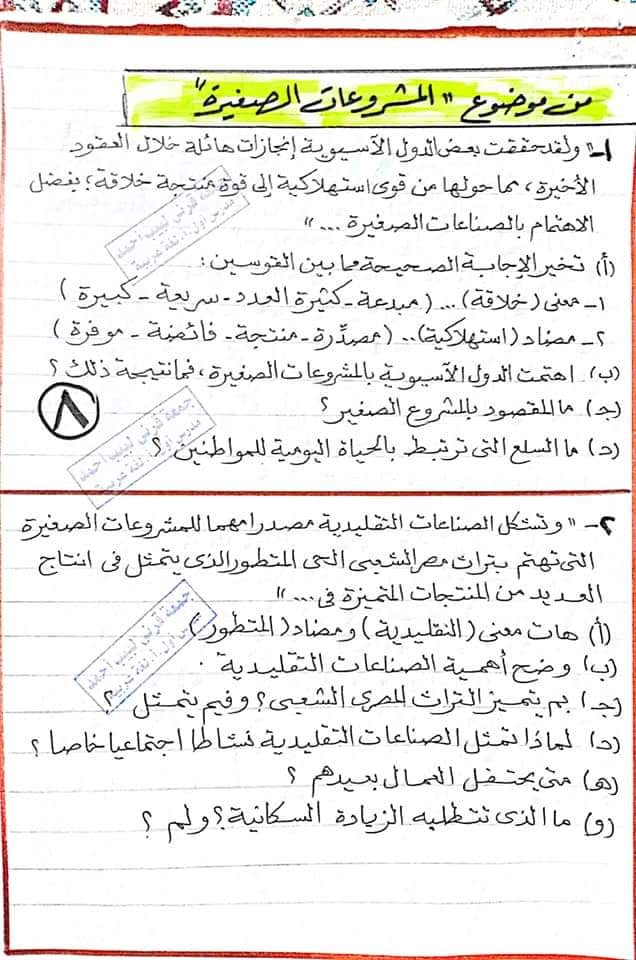 من موضوع "المشروعات الصغيرة"
١- "ولقد حققت بعض الدول الآسيوية إنجازات هائلة خلال العقود
الأخيرة، مما حولها من قوى استهلاكية إلى قوة منتجة خلاقة؛ بفضل
الاهتمام بالصناعات الصغيرة ... "
(أ) تخير الإجابة الصحيحة مما بين القوسين:
١- معنى (خلاقة) ... (مبدعة - كثيرة العدد - سريعة - كبيرة)
٢- مضاد (استهلاكية) .. (مصدِّرة - منتجة - فائضة - موفرة)
(ب) اهتمت الدول الآسيوية بالمشروعات الصغيرة، فما نتيجة ذلك؟
(جـ) ما المقصود بالمشروع الصغير؟
(د) ما السلع التى ترتبط بالحياة اليومية للمواطنين؟
٨
٢- "وتشكل الصناعات التقليدية مصدرا مهما للمشروعات الصغيرة
التى تهتم بتراث مصر الشعبى الحى المتطور الذى يتمثل فى انتاج
العديد من المنتجات المتميزة فى ... "
(أ) هات معنى (التقليدية) ومضاد (المتطور)
(ب) وضح أهمية الصناعات التقليدية .
(جـ) بم يتميز التراث المصرى الشعبى؟ وفيم يتمثل؟
(د) لماذا تمثل الصناعات التقليدية نشاطا اجتماعيا خاصا؟
(هـ) متى يحتفل العمال بعيدهم؟
(و) ما الذى تتطلبه الزيادة السكانية؟ ولم؟
جمعة قرنى لبيب احمد
مدرس اول أ. لغة عربية
جمعة قرنى لبيب احمد
مدرس اول أ. لغة عربية
جمعة قرنى لبيب احمد
مدرس اول أ. لغة عربية